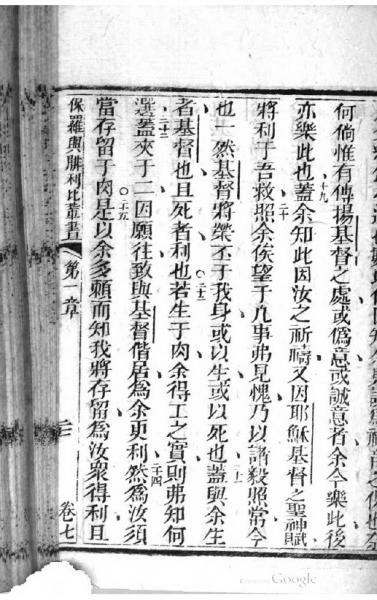 何倘惟有傳揚基督之處或偽意或誠意者余今樂此後
十九
亦樂此也蓋余知此因汝之祈禱又因耶穌基督之聖神賦
二十
將利于吾救照余俟望于凡事弗見愧乃以諸毅照常今
也一然基督將榮丕于我身或以生或以死也蓋與余生
二十一
者基督也且死者利也若生于肉余得工之實則弗知何
二十二
選蓋夾于二因願往致與基督偕居為余更利然為汝須
二十四
當存留于肉是以余多頼而知我將存留為汝眾得利且
二十五
保羅與腓利比輩書
第一章
三
卷七
Google